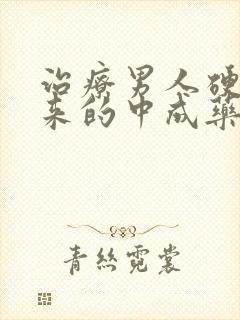 治療男人硬
来的中成藥
青絲霓裳